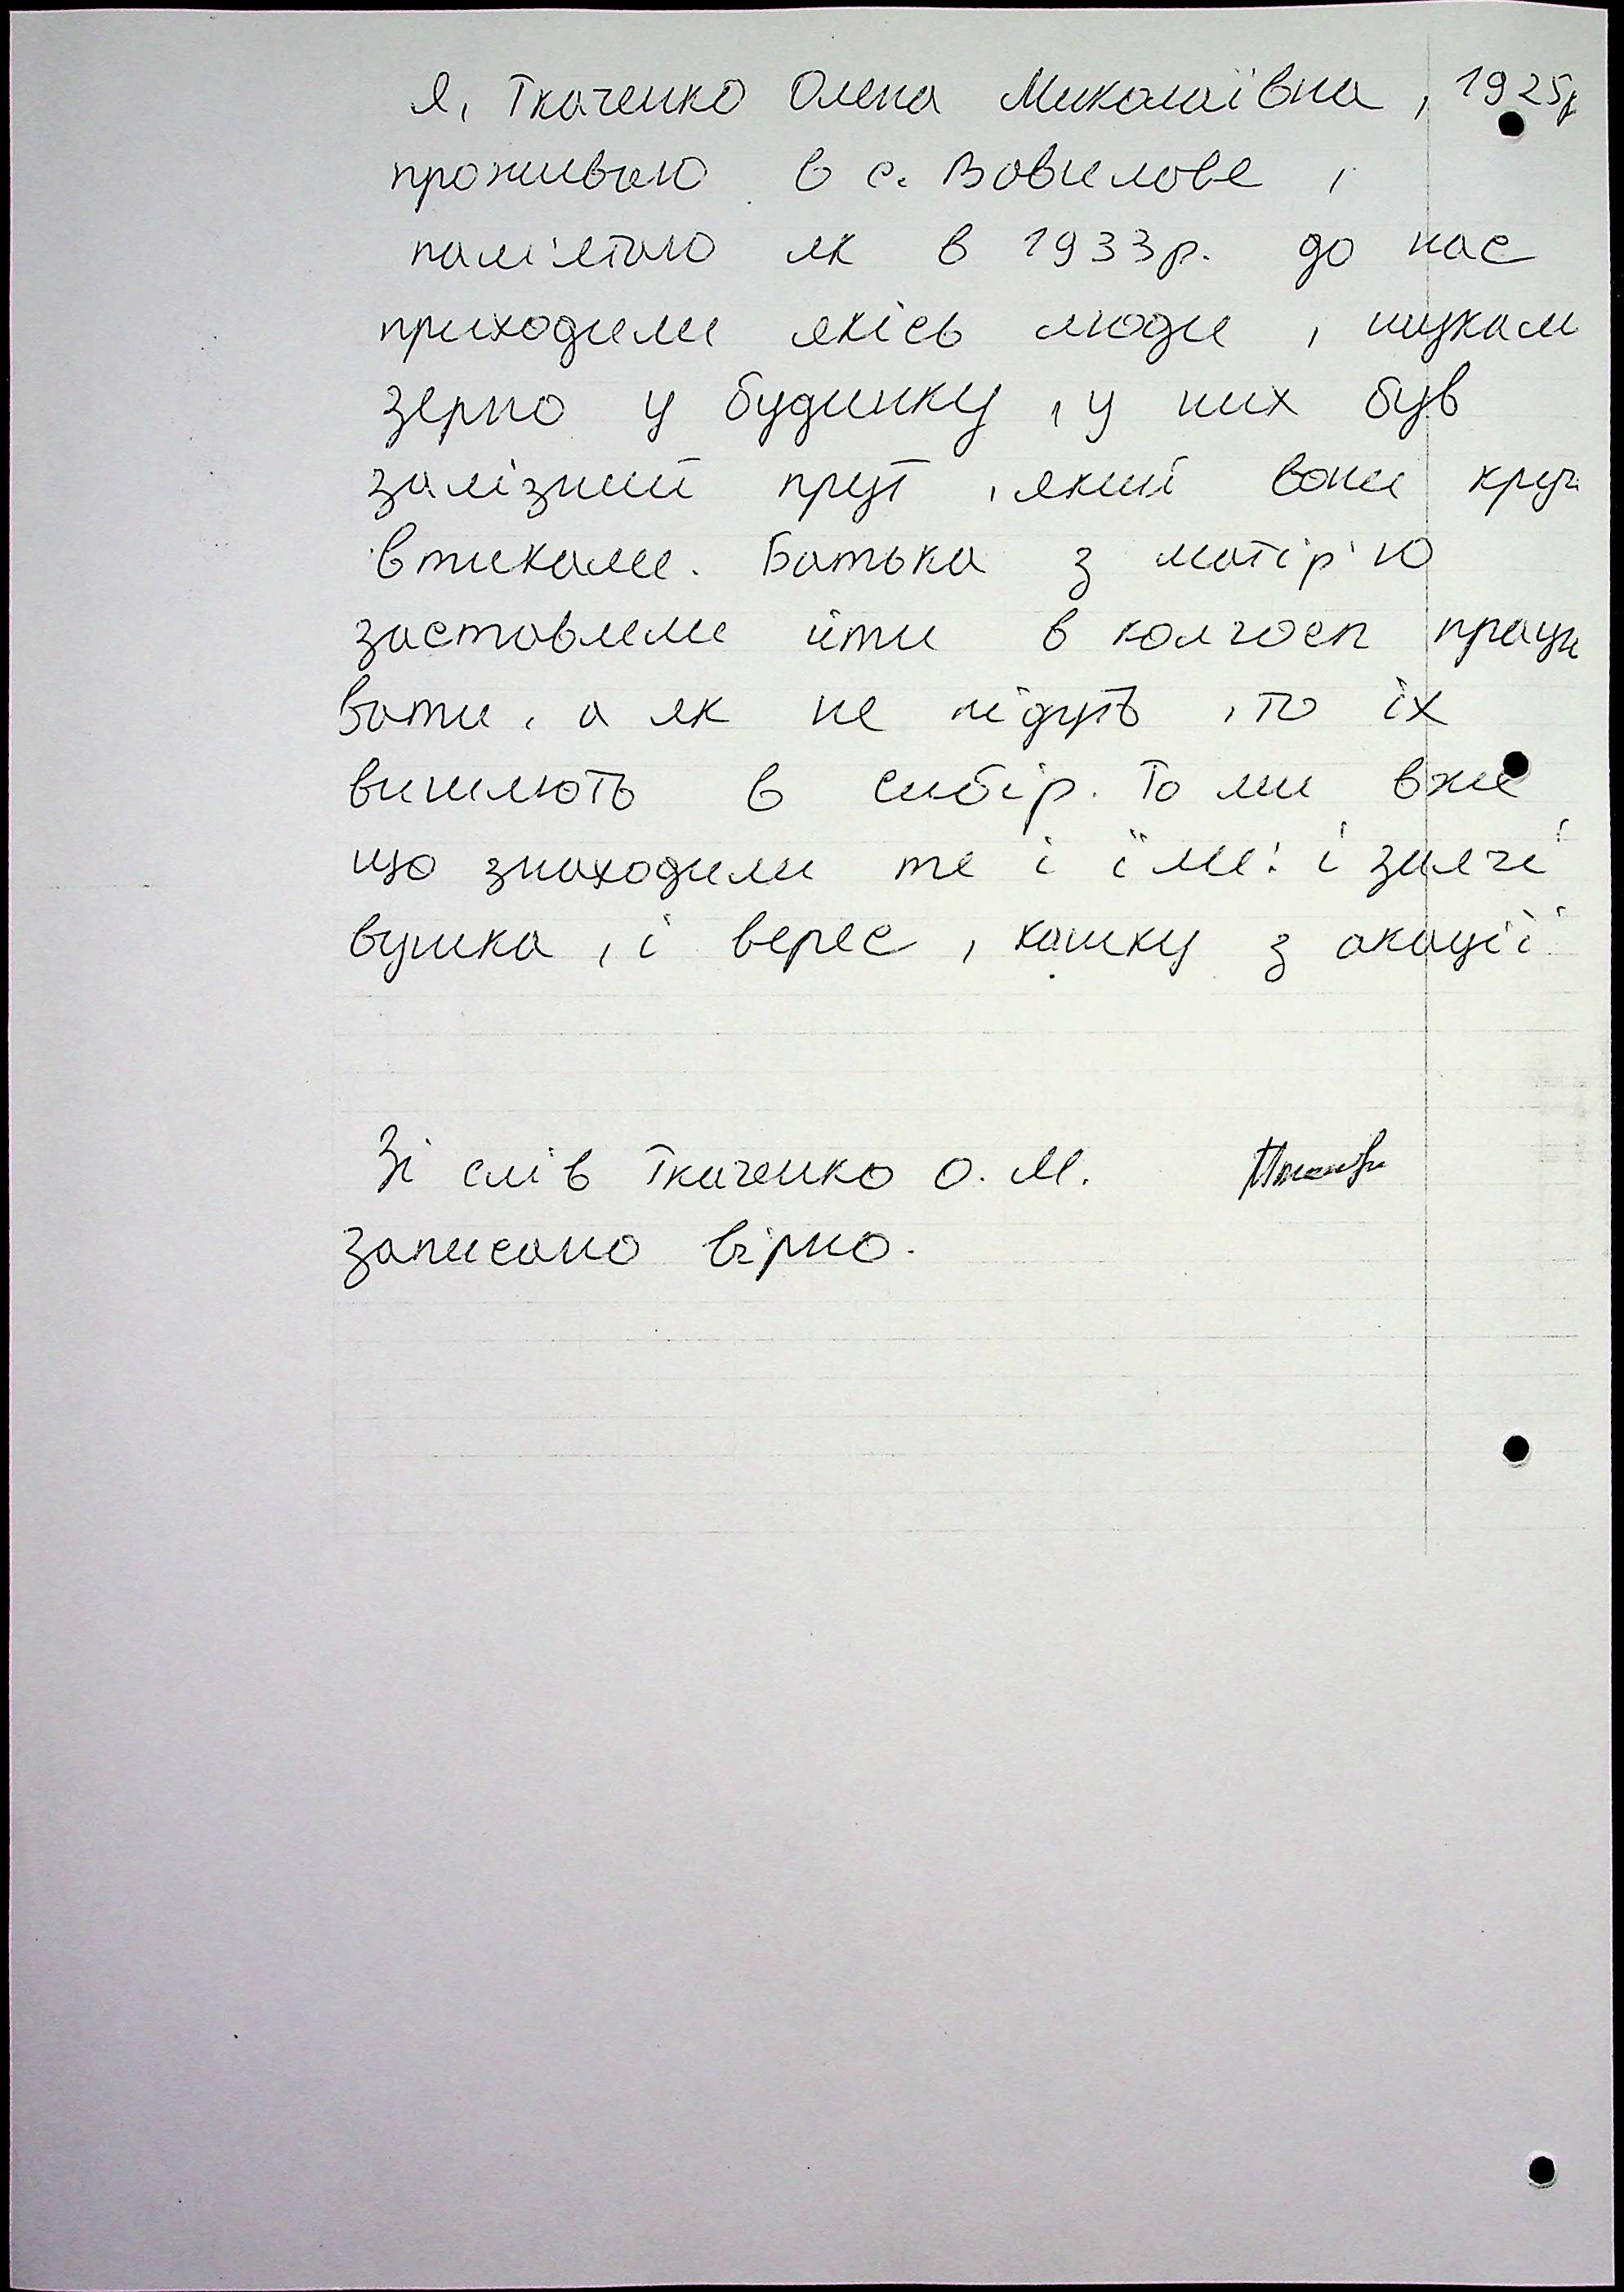 Я, Ткаченко Олена Миколаївна, 1925р
проживаю в с. Вавилове,
пам'ятаю як в 1933р. до нас
приходили якісь люди, шукали
зерно у будинку, у них був
залізний прут, який вони круч
втикали. Батька з матір'ю
заставляли йти в колгосп працю
вати, а як не підуть, то їх
вишлють в сибір. То ми вже
що знаходили те і їли: і заячі
вушка, і верес, кашку з акації
Зі слів Ткаченко О. М.
записано вірно.